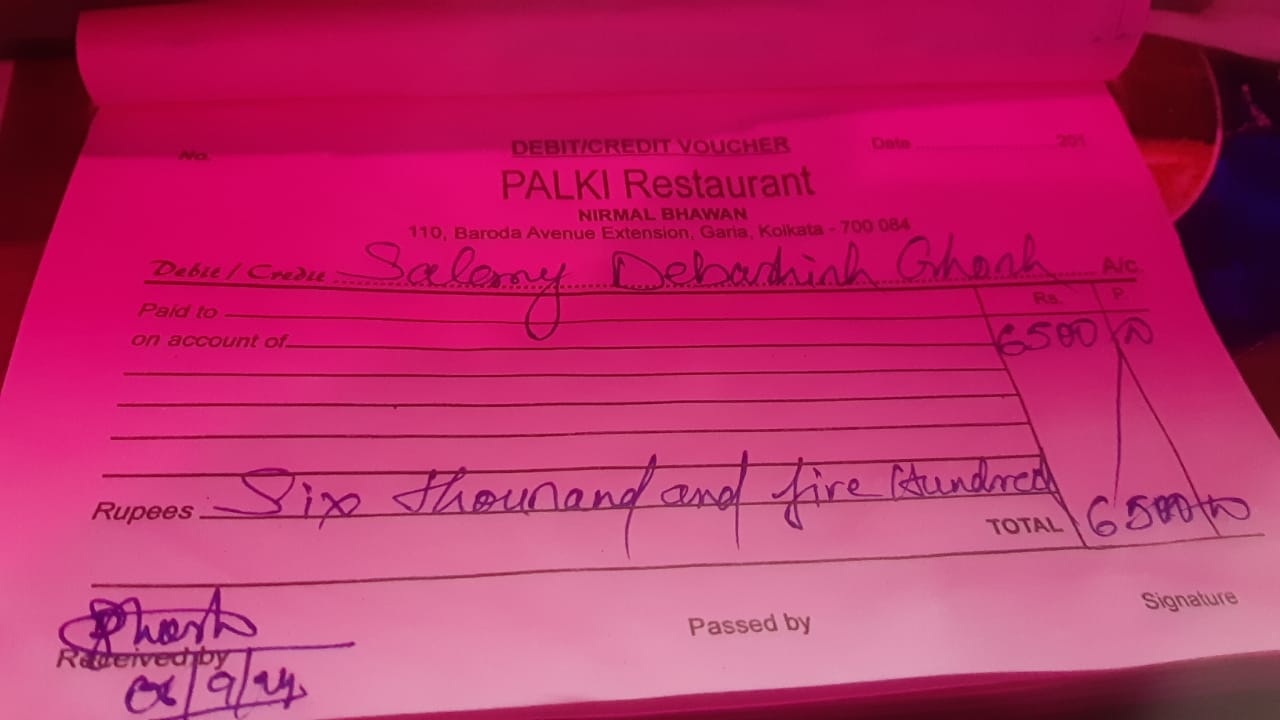 No. DEBIT/CREDIT VOUCHER Date ........................ 201
PALKI Restaurant
NIRMAL BHAWAN
110, Baroda Avenue Extension, Garia, Kolkata - 700 084
Debit / Credit Salery Debashish Ghosh A/c.
Rs. P.
Paid to
on account of 6500 00
Rupees Six thousand and five Hundred
TOTAL 6500 00
Ghosh
Received by Passed by Signature
06/9/24